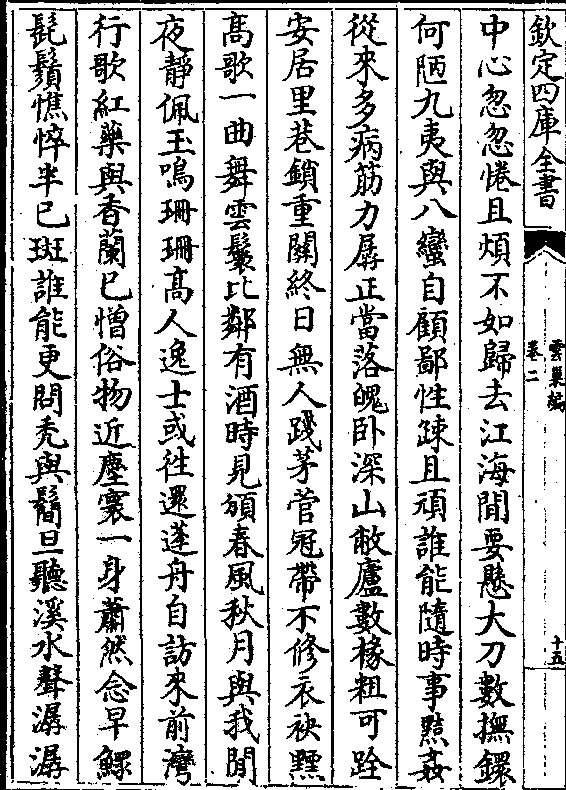 欽定四庫全書
雲巢編
卷二
十五
中心忽忽惓且煩不如歸去江海閒要懸大刀數撫鐶
何陋九夷與八蠻自顧鄙性疎且頑誰能隨時事黠姦
從來多病筋力孱正當落魄卧深山敝廬數椽粗可跧
安居里巷鎖重關終日無人踐茅菅冠帶不修衣袂
髙歌一曲舞雲鬟比鄰有酒時見頒春風秋月與我閒
夜靜佩玉鳴珊珊髙人逸士或往還蓬舟自訪來前灣
行歌紅藥與香蘭已憎俗物近塵寰一身蕭然念早鰥
髭鬚憔悴半已斑誰能更問禿與鬜旦聽溪水聲潺潺